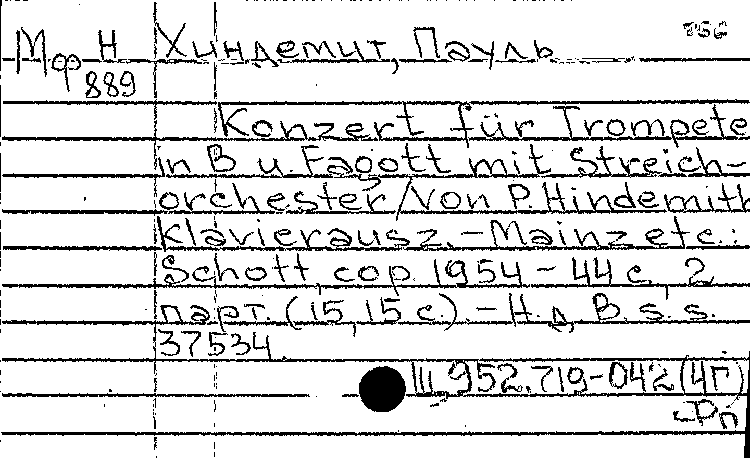 Мф Н Хиндемит, Пауль
889
Konzert für Trompete
in B u. Fagott mit Streich-
orchester / von P. Hindemith
Klavierausz. - Mainz etc.:
Schott, cop. 1954 - 44 с., 2
парт. (15, 15 с.). - Н. д. B. s. s.
37534.
Ш 952.719-042 (4Г)
Рп